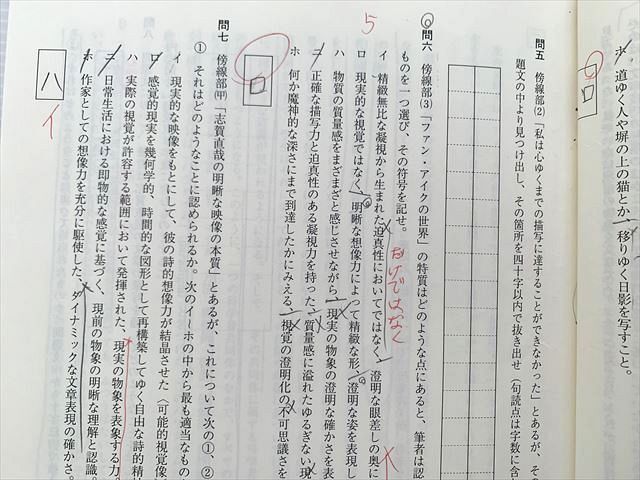 ホ 道ゆく人や塀の上の猫とか、移りゆく日影を写すこと。
ロ
問五 傍線部⑵「私は心ゆくまでの描写に達することができなかった」とあるが、その
題文の中より見つけ出し、その箇所を四十字以内で抜き出せ(句読点は字数に含
問六 傍線部⑶「ファン・アイクの世界」の特質はどのような点にあると、筆者は認
ものを一つ選び、その符号を記せ。
5
イ 精緻無比な凝視から生まれた迫真性においてではなく、澄明な眼差しの奥に
だけではなく
ロ 現実的な視覚ではなく、明晰な想像力によって精緻な形、澄明な姿を表現し
ハ 物質の質量感をまざまざと感じさせながら、現実の物象の澄明な確かさを表
ニ 正確な描写力と迫真性のある凝視力を持った、質量感に溢れたゆるぎない現
ホ 何か魔神的な深さにまで到達したかにみえる、視覚の澄明化の不可思議さを
ロ
問七 傍線部㈣「志賀直哉の明晰な映像の本質」とあるが、これについて次の①、②
① それはどのようなことに認められるか。次のイ～ホの中から最も適当なもの
イ 現実的な映像をもとにして、彼の詩的想像力が結晶させた〈可能的視覚像
ロ 感覚的現実を幾何学的、時間的な図形として再構築してゆく自由な詩的精
ハ 実際の視覚が許容する範囲において発揮された、現実の物象を表象する力
ニ 日常生活における即物的な感覚に基づく、現前の物象の明晰な理解と認識。
ホ 作家としての想像力を充分に駆使した、ダイナミックな文章表現の確かさ。
ハ
イ